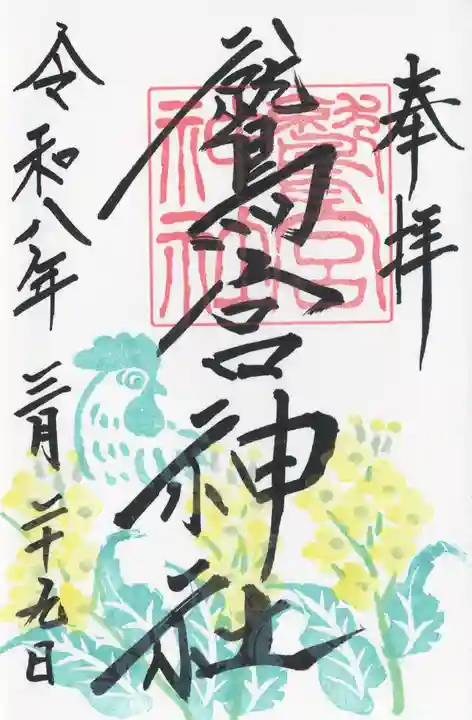 奉拝
鷲宮神社
鷲宮神社
令和八年三月二十九日